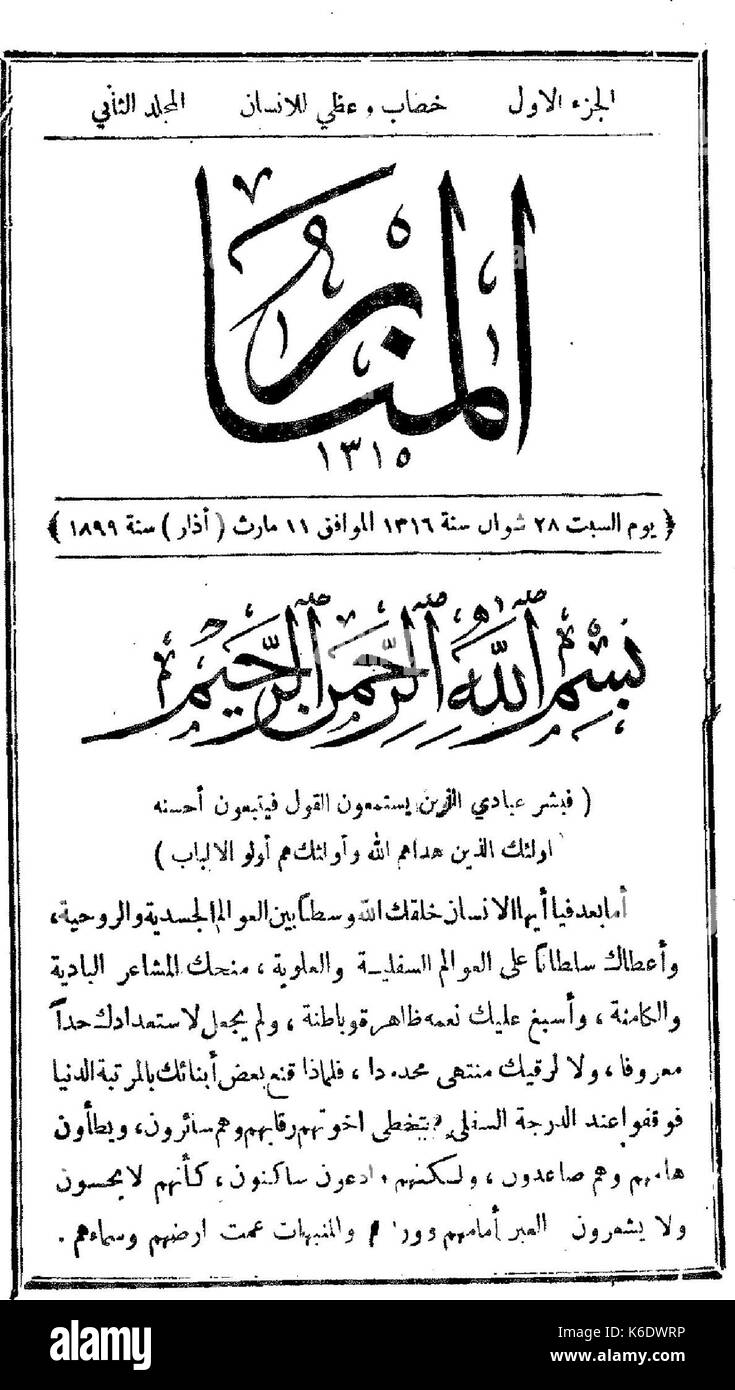 الجزء الاول خطاب وعظي للانسان المجلد الثاني
المنار
١٣١٥
﴿ يوم السبت ٢٨ شوال سنة ١٣١٦ الموافق ١١ مارث ( أذار ) سنة ١٨٩٩ ﴾
بِسْمِ اللَّهِ الرَّحْمَنِ الرَّحِيمِ
( فبشر عبادي الذين يستمعون القول فيتبعون أحسنه
اولئك الذين هداهم الله وأولئك هم أولو الالباب )
أما بعد فيا أيها الانسان خلقك الله وسطا بين العوالم الجسدية والروحية ،
وأعطاك سلطانا على العوالم السفلية والعلوية ، منحك المشاعر البادية
والكامنة ، وأسبغ عليك نعمه ظاهرة وباطنة ، ولم يجعل لاستعدادك حداً
معروفا ، ولا لرقيك منتهى محدودا ، فلماذا قنع بعض أبنائك بالمرتبة الدنيا
فوقفوا عند الدرجة السفلى يتخطى اخوتهم رقابهم وهم سائرون ، ويطأون
هامهم وهم صاعدون ، ولكنهم وادعون ساكنون ، كأنهم لا يحسون
ولا يشعرون العبر أمامهم والمنبهات عمت ارضهم وسماءهم .
alamy
alamy
Image ID: K6DWRP
www.alamy.com